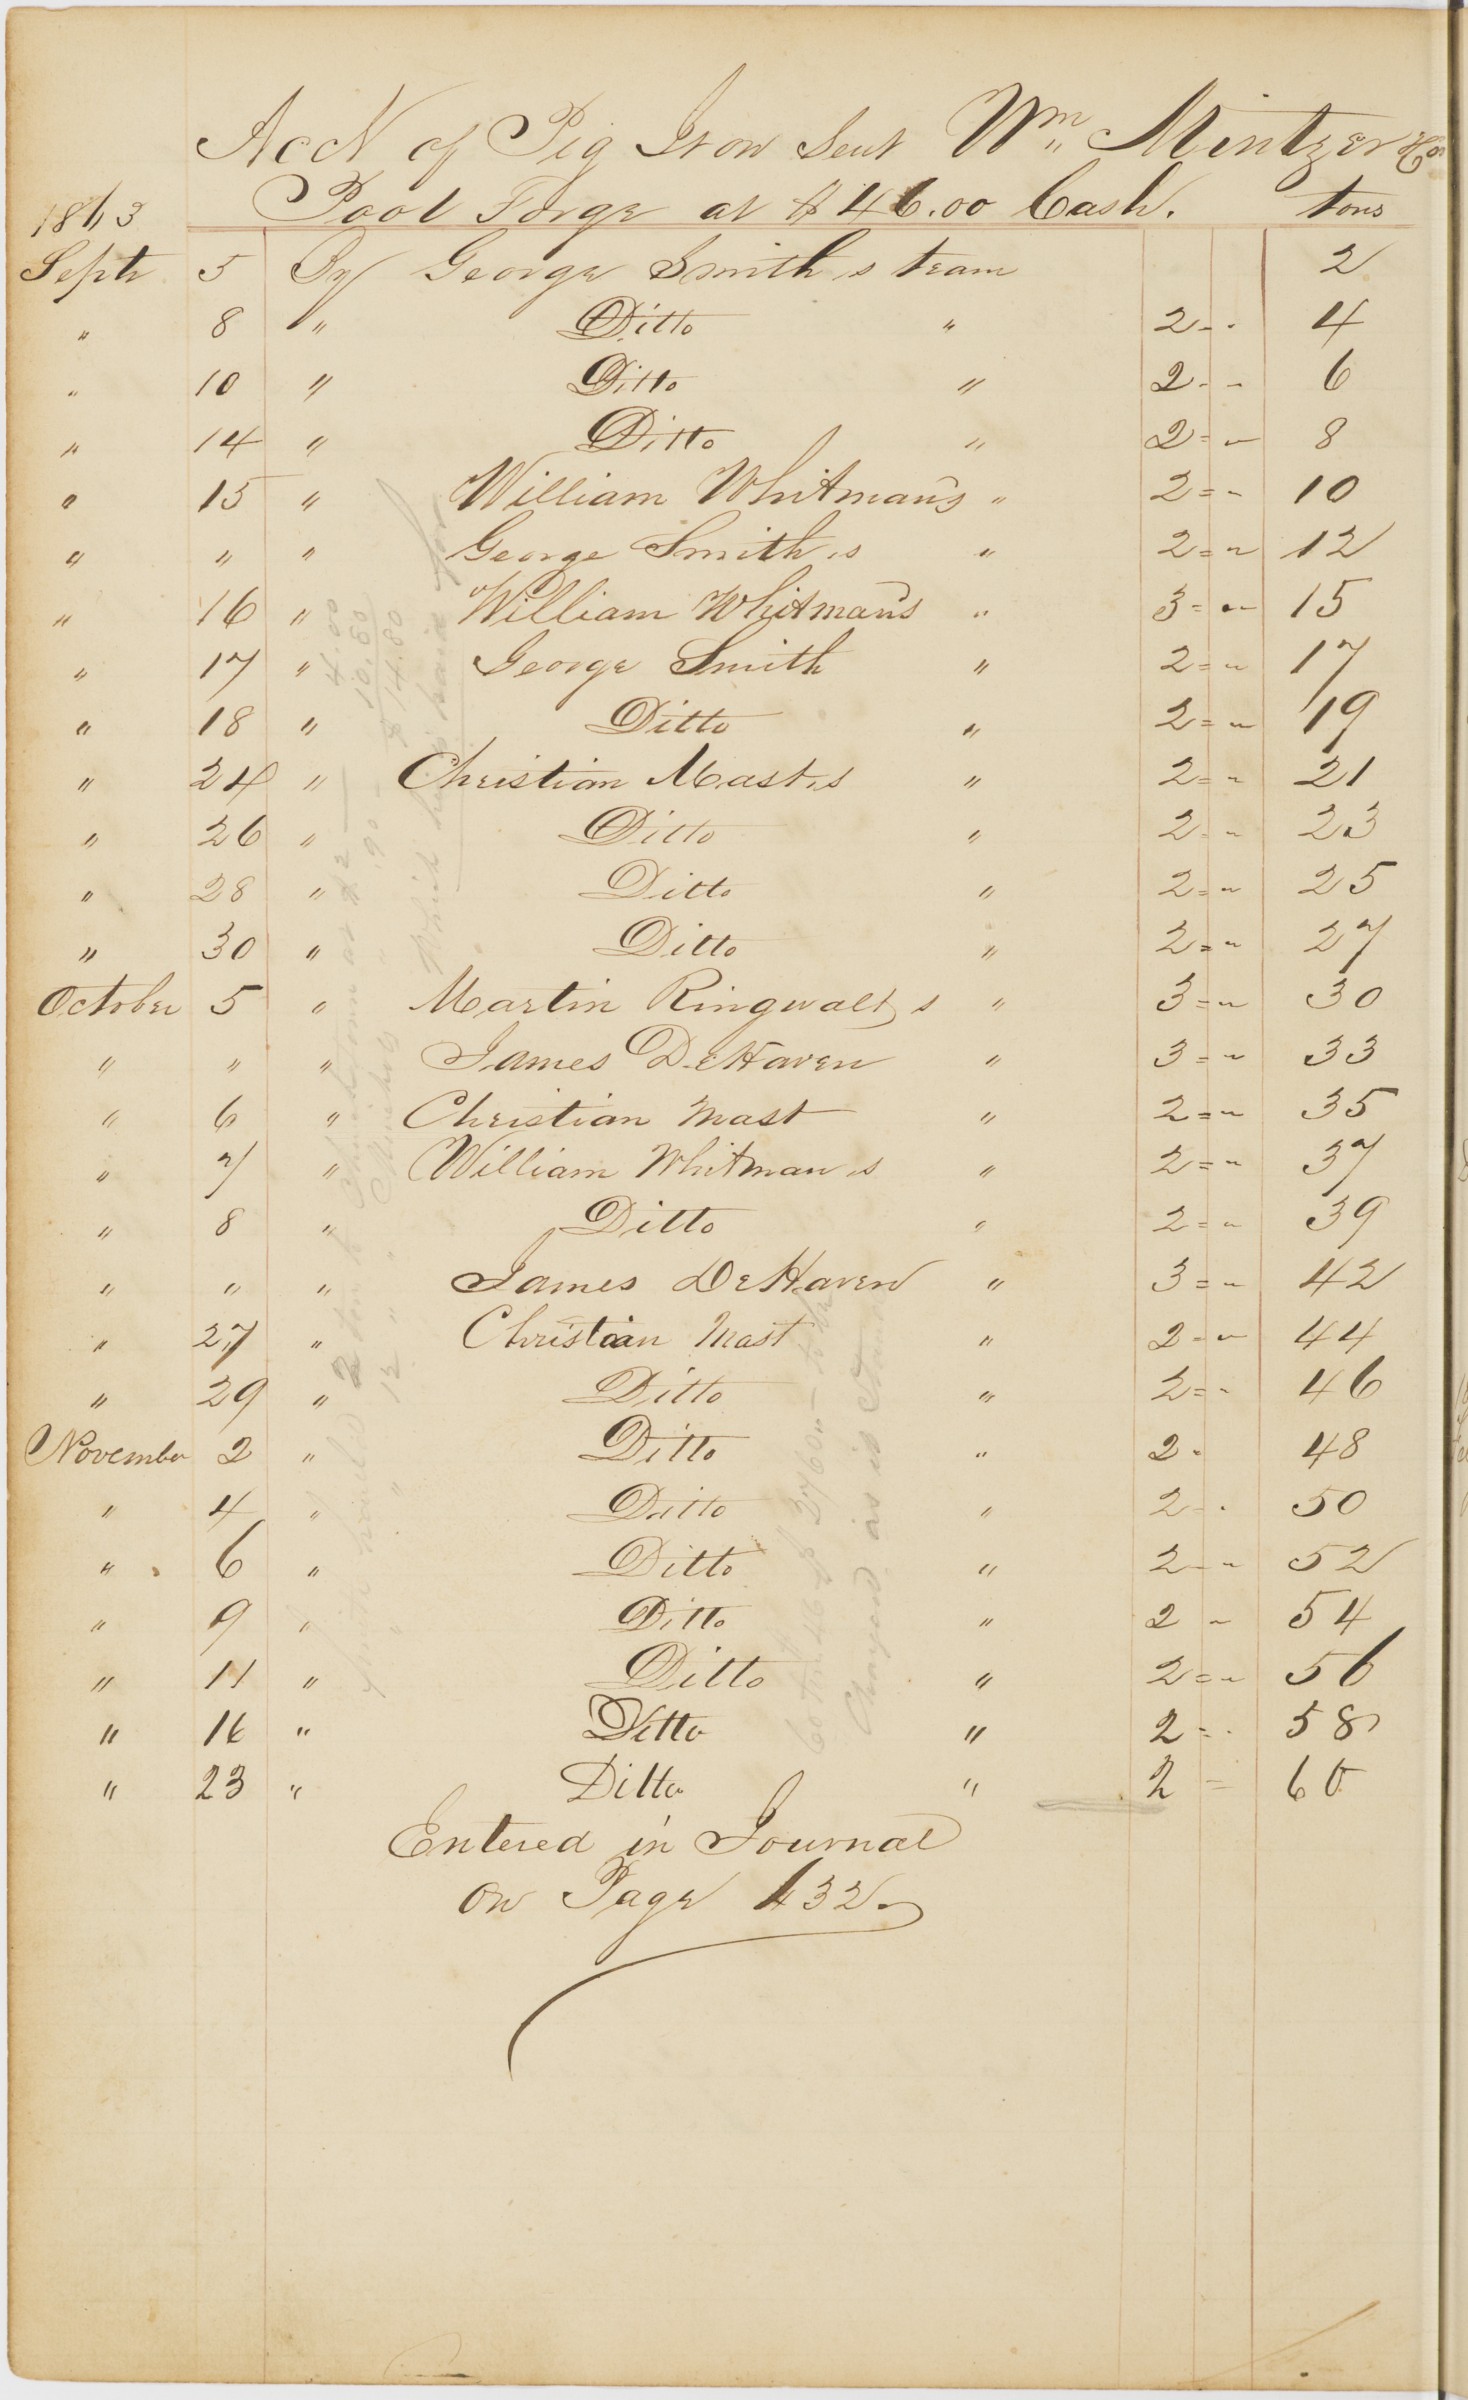 Acct of Pig Iron Sent Wm Mintzer &Co
Pool Forge at $46.00 Cash. tons
1863
Septr 5 By George Smith,s team 2
" 8 " Ditto " 2 - - 4
" 10 " Ditto " 2 - - 6
" 14 " Ditto " 2 = - 8
" 15 " William Whitman's " 2 = - 10
" " " George Smith,s " 2 = - 12
" 16 " William Whitman's " 3 = - 15
" 17 " George Smith " 2 = - 17
" 18 " Ditto " 2 = - 19
" 24 " Christian Mast,s " 2 = - 21
" 26 " Ditto " 2 - - 23
" 28 " Ditto " 2 = - 25
" 30 " Ditto " 2 = - 27
October 5 " Martin Ringwalt,s " 3 = - 30
" " " James DeHaven " 3 = - 33
" 6 " Christian Mast " 2 = - 35
" 7 " William Whitman,s " 2 = - 37
" 8 " Ditto " 2 = - 39
" " " James DeHaven " 3 = - 42
" 27 " Christian Mast " 2 - - 44
" 29 " Ditto " 2 = - 46
November 2 " Ditto " 2 - 48
" 4 " Ditto " 2 - - 50
" 6 " Ditto " 2 - - 52
" 9 " Ditto " 2 - 54
" 11 " Ditto " 2 = - 56
" 16 " Ditto " 2 - - 58
" 23 " Ditto " 2 - 60
Entered in Journal
on Page 432.
4.00
10.80
$14.80
60 tons 46 $ 2760..
Charged as is